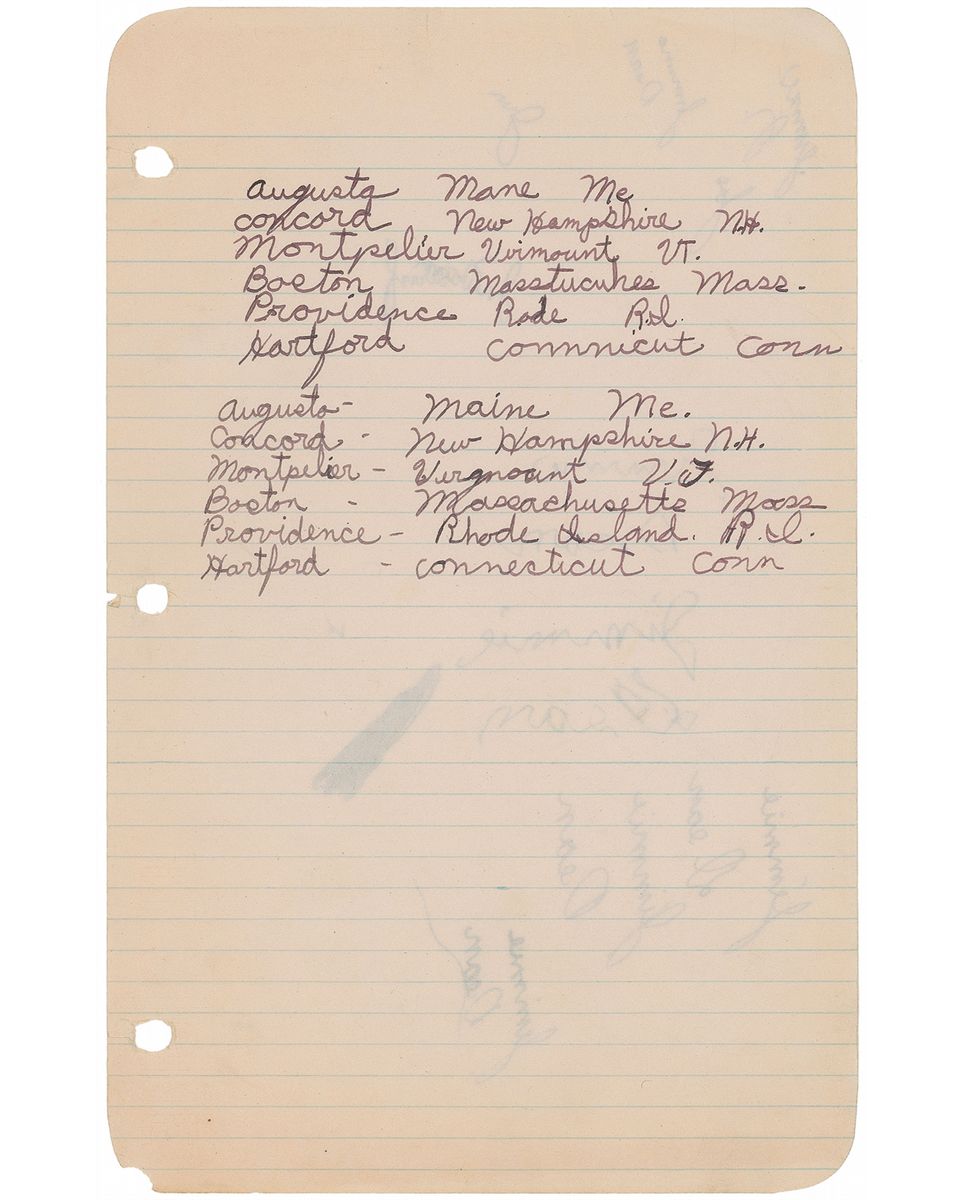 Augusta Mane Me
Concord New Hampshire N.H.
Montpelier Virmount VT.
Boston Masstucuhes Mass.
Providence Rode R.I.
Hartford Connnicut Conn
Augusta- Maine Me.
Concord - New Hampshire N.H.
Montpelier - Vergnount V.T.
Boston - Massachusetts Mass
Providence - Rhode Island. R.I.
Hartford - Connecticut Conn
Jimmie
Dean
Dean
Jimmie
Dean
Jimmie
Dean
Jimmie